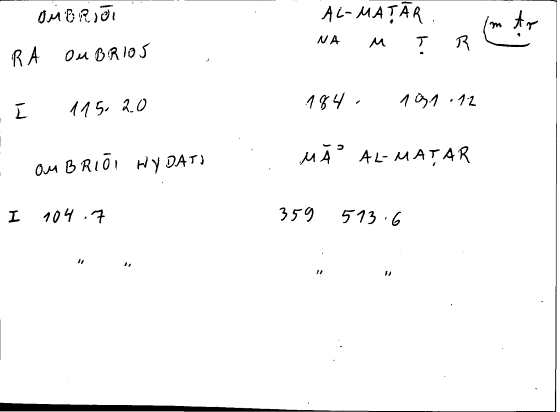 OMBRIŌI AL-MAṬĀR (mṭr
RA OMBRIOS NA M Ṭ R
I 115.20 184. 191.12
OMBRIŌI HYDATI MĀʾ AL-MAṬAR
I 104.7 359 513.6
" " " "